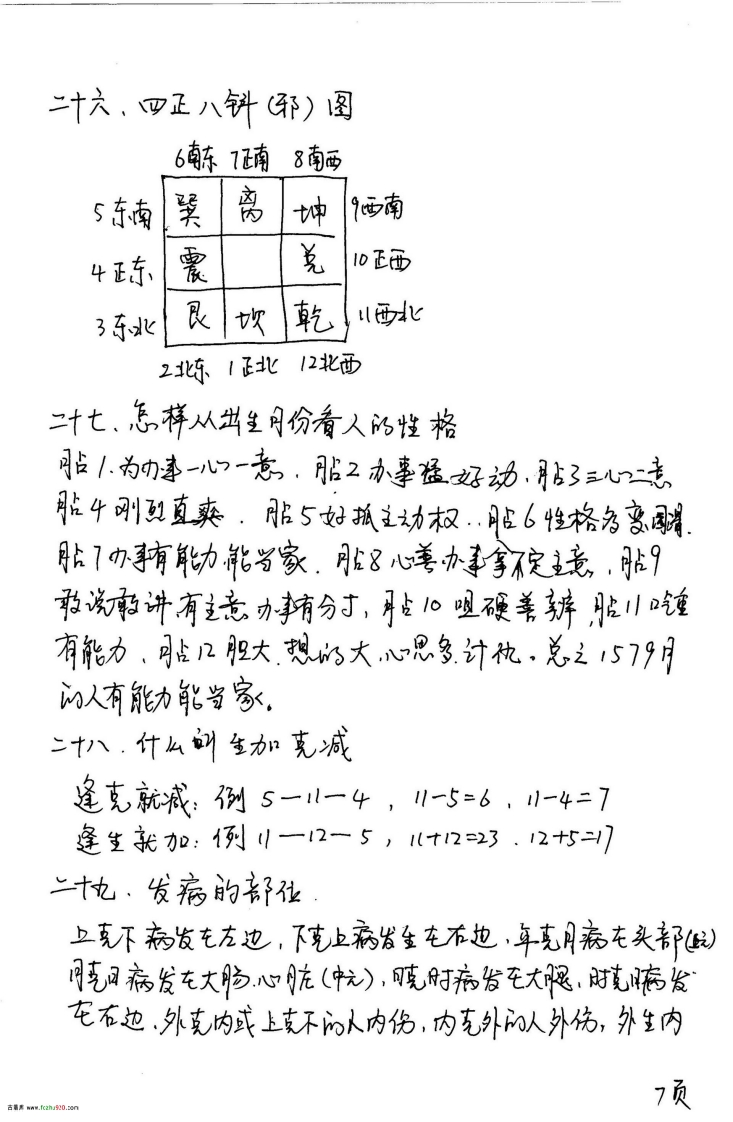 二十六、四正八斜(邪)图
6南东 7正南 8南西
5东南 巽 离 坤 9西南
4正东 震 兑 10正西
3东北 艮 坎 乾 11西北
2北东 1正北 12北西
二十七、怎样从出生月份看人的性格
月占1.为办事一心一意.月占2办事猛好动.月占3三心二意
月占4刚烈直爽.月占5好抓主动权..月占6性格多变圆滑.
月占7办事有能力能当家.月占8心善办事拿不定主意,月占9
敢说敢讲.有主意办事有分寸,月占10咀硬善辩,月占11
有能力、月占12胆大.想的大.心思多.计仇。总之1579月
的人有能力能当家。
二十八.什么叫生加克减
逢克就减:例 5—11—4, 11-5=6. 11-4=7
逢生就加:例 11—12—5, 11+12=23. 12+5=17
二十九.发病的部位.
上克下病发在左边,下克上病发生在右边.年克月病在头部(上元)
月克日病发在大肠.心脏(中元),日克时病发在大腿.时克日病发
在右边.外克内或上克下的人内伤,内克外的人外伤,外生内
7页
古籍库 www.fczhu920.com